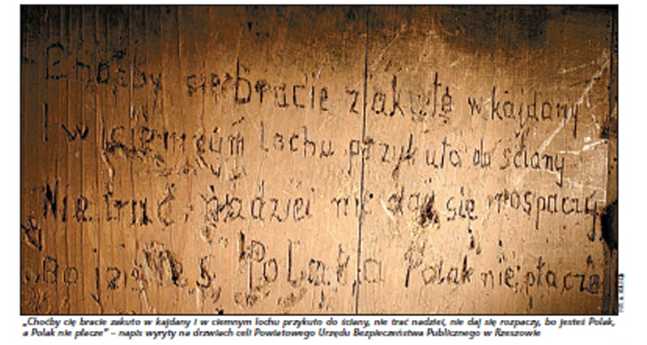 Choćby cię bracie zakuto w kajdany
I w ciemnym lochu przykuto do ściany
Nie trać nadziei nie daj się rospaczy
Bo jesteś Polak, a Polak nie płacze
„Choćby cię bracie zakuto w kajdany i w ciemnym lochu przykuto do ściany, nie trać nadziei, nie daj się rozpaczy, bo jesteś Polak,
a Polak nie płacze” – napis wyryty na drzwiach celi Powiatowego Urzędu Bezpieczeństwa Publicznego w Rzeszowie